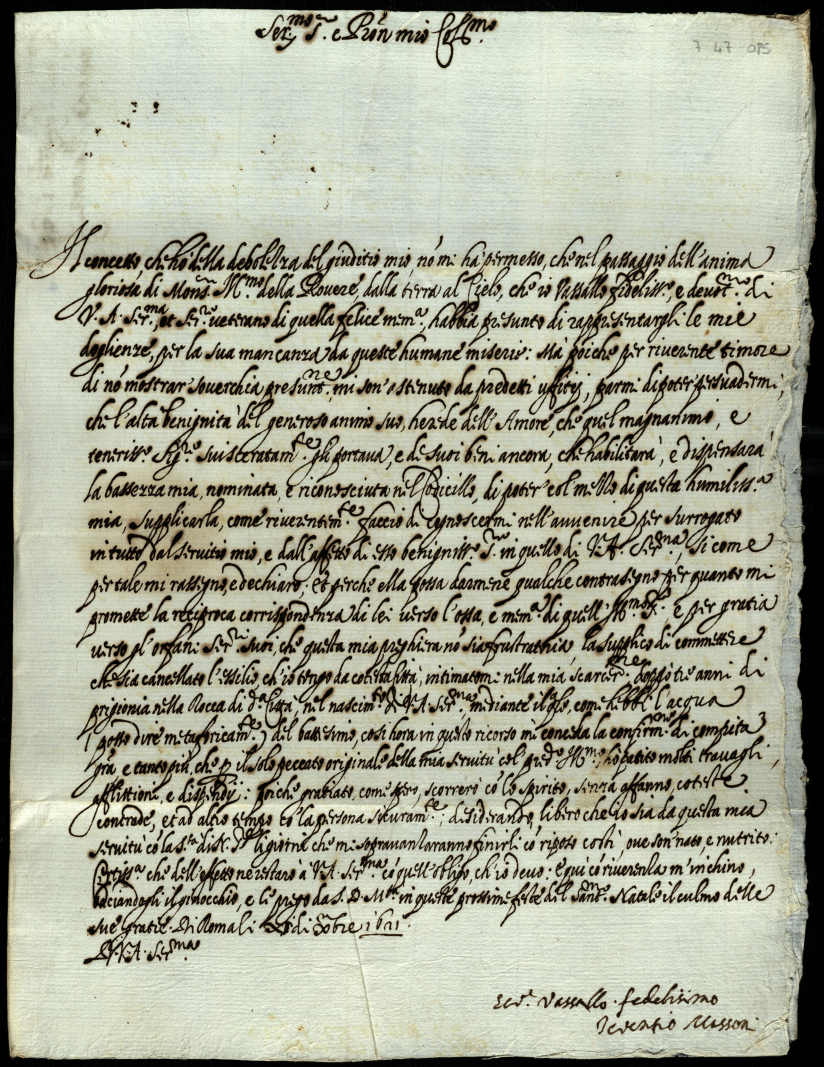 Ser.mo S.r e Pron mio Col.mo
7 47 015
Il concetto, che hò della debolezza del giuditio mio, nō mi ha permesso, che nel passaggio dell'anima
gloriosa di Mons.r Ill.mo della Rovere, dalla terra al Cielo, che io Vassallo fidelisso, e devot.mo di
V. A. Ser.ma, et Ser.re veterano di quella felice mem.a, habbia presunto di rappresentargli le mie
doglienze, per la sua mancanza da queste humane miserie: Mà poiche per riverente timore
di nō mostrar soverchia presunt.ne, mi son'astenuto da predetti uffitij, parmi di poter persuadermi,
che l'alta benignità del generoso animo suo, herede dell'Amore, che quel magnanimo, e
tenerisso Sig.re suisceratam.te gli portava, e de suoi beni ancora, che habilitarà, e dispensarà
la bassezza mia, nominata, e riconosciuta nel Codicillo, di poter col mezzo di questa humiliss.a
mia, supplicarla, come riverentem.te faccio di conoscermi nell'avvenire per surrogato
in tutto dal servitio mio, e dall'affetto di esso benignisso S.re in quello di V. A. Ser.ma, si come
per tale mi rassegno, e dechiaro; et perche ella possa darmene qualche contrasegno per quanto mi
promette la reciproca corrispondenza di lei verso l'ossa, e mem.a di quell'Ill.mo S.re e per gratia
verso gl'orfani Ser.ri suoi, che questa mia preghiera nō sia frustratoria, la supplico di commettere
che sia cancellato l'essilio, ch'io tengo da cotesta Città, intimatomi nella mia scarcer.ne doppo tre anni di
prigionia nella Rocca di d.a Città, nel nascim.to di V. A. Ser.ma mediante il q.le, come hebbi l'acqua
(posso dire metaforicam.te) del battesimo, così hora in questo ricorso mi conceda la confirm.ne di compita
gra, e tanto più, che p il solo peccato originale della mia servitù col pred.o Ill.mo, hò patito molti travagli,
afflittioni, e dispendij: poiche gratiato, come spero, scorrerò cō lo spirito, senza affanno, coteste
contrade, et ad altro tempo cō la persona sicuram.te; desiderando, libero che io sia da questa mia
servitù cō la S.ta di N. S.re li giorni che mi sopravanzaranno finirli cō riposo costì ove son nato, e nutrito:
Certiss.o che dell'effetto ne restarò à V. A. Ser.ma cō quell'obligo, ch'io devo: e quì cō riverenza m'inchino,
baciandogli il ginocchio, e le prego da S. D. M.tà in queste prossime feste del Sant.mo Natale il culmo delle
sue gratie. Di Roma li di Xbre 1621.
Di V. A. Ser.ma
Ser.re Vassallo fedelissimo
Terentio Massoni